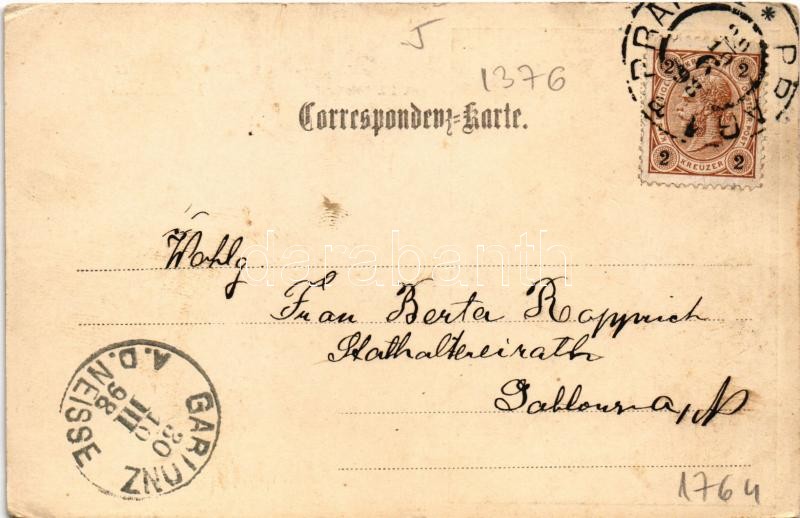 J
1376
Correspondenz=Karte.
2 2
2 KREUZER 2
Wohlg.
Frau Berta Roppnich
Statthaltereirath
Gablonz a/N
GABLONZ
A.D. NEISSE
30
10
III
98
1764
darabanth